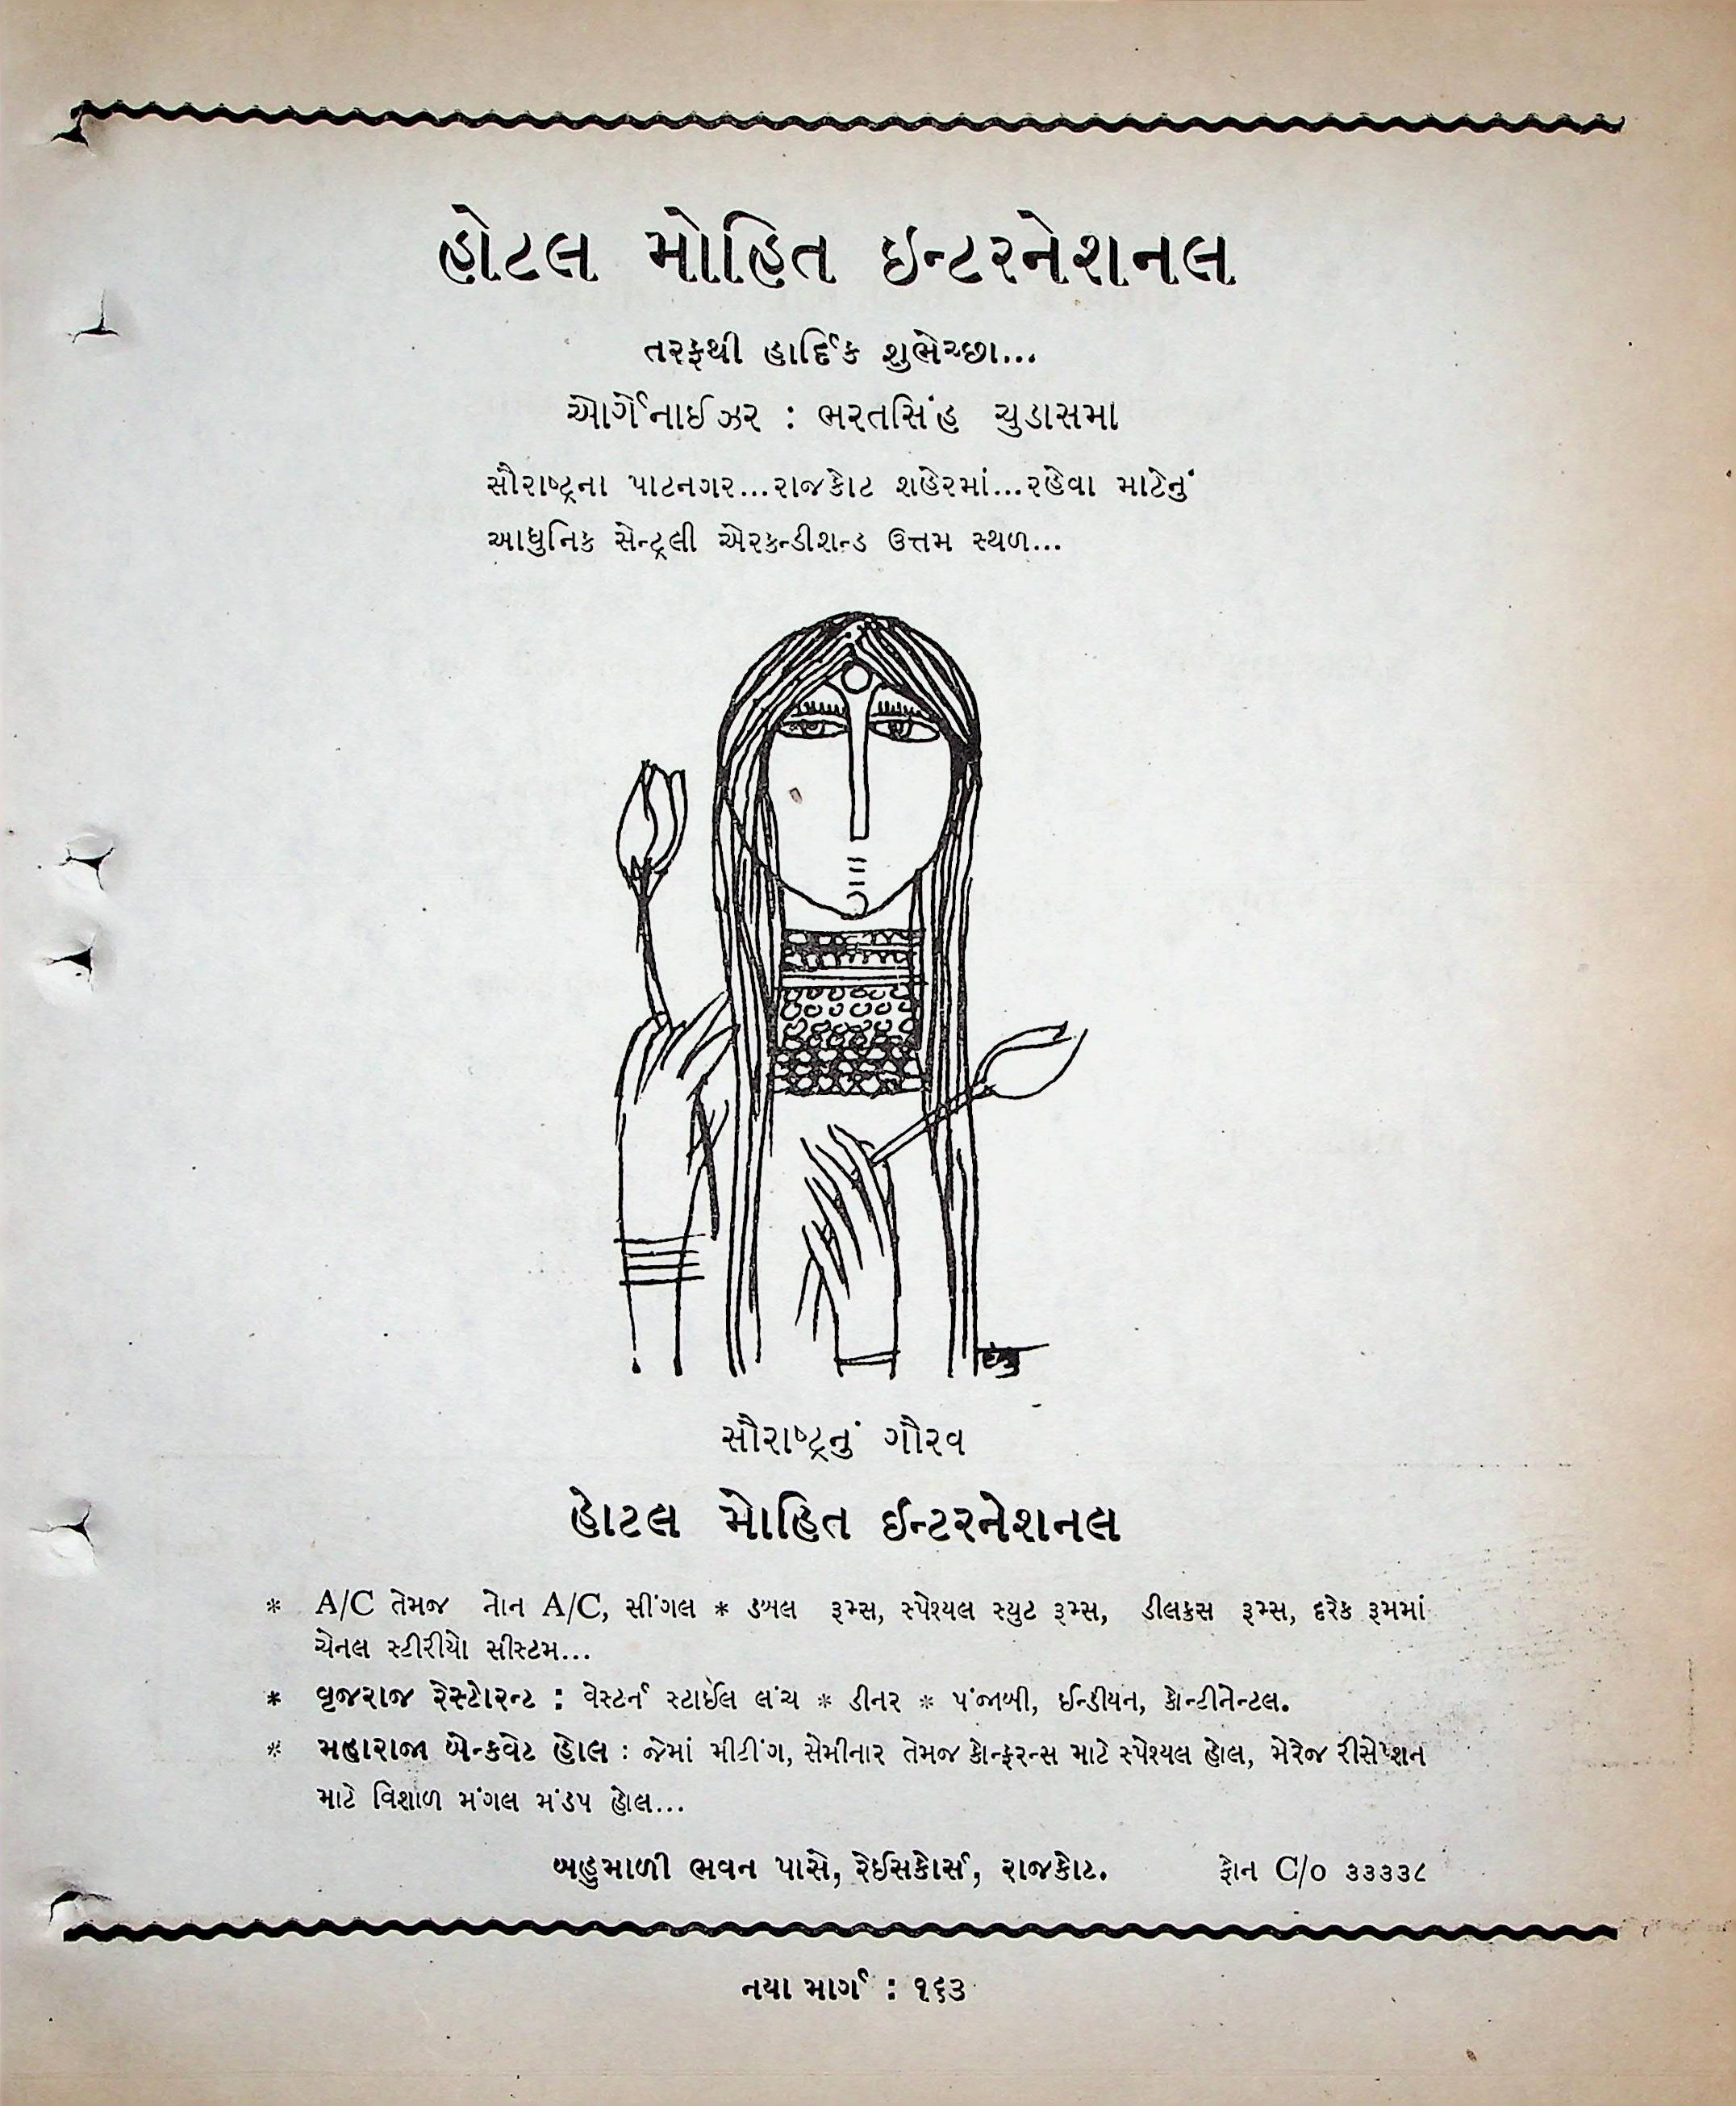 હોટલ મોહિત ઇન્ટરનેશનલ
તરફથી હાર્દિક શુભેચ્છા...
ઓર્ગેનાઈઝર : ભરતસિંહ ચુડાસમા
સૌરાષ્ટ્રના પાટનગર...રાજકોટ શહેરમાં...રહેવા માટેનું
આધુનિક સેન્ટ્રલી એરકન્ડીશન્ડ ઉત્તમ સ્થળ...
સૌરાષ્ટ્રનું ગૌરવ
હોટલ મોહિત ઈન્ટરનેશનલ
* A/C તેમજ નોન A/C, સીંગલ * ડબલ રૂમ્સ, સ્પેશ્યલ સ્યુટ રૂમ્સ, ડીલક્સ રૂમ્સ, દરેક રૂમમાં
ચેનલ સ્ટીરીયો સીસ્ટમ...
* વૃજરાજ રેસ્ટોરન્ટ : વેસ્ટર્ન સ્ટાઈલ લંચ * ડીનર * પંજાબી, ઈન્ડીયન, કોન્ટીનેન્ટલ.
* મહારાજા બેન્કવેટ હોલ : જેમાં મીટીંગ, સેમીનાર તેમજ કોન્ફરન્સ માટે સ્પેશ્યલ હોલ, મેરેજ રીસેપ્શન
માટે વિશાળ મંગલ મંડપ હોલ...
બહુમાળી ભવન પાસે, રેઈસકોર્સ, રાજકોટ. ફોન C/o ૩૩૩૩૮
નયા માર્ગ : ૧૬૩